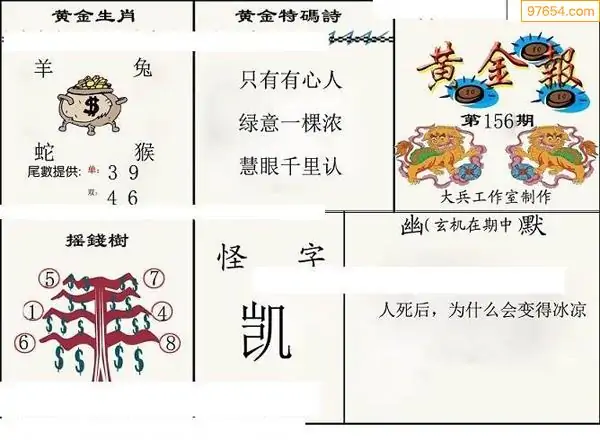 97654.com
黄金生肖
羊 兔
$
蛇 猴
尾數提供: 单: 3 9
双: 4 6
黄金特碼詩
只有有心人
绿意一棵浓
慧眼千里认
黄金報
第156期
大兵工作室制作
摇錢樹
⑤ ⑦
① ④
⑥ ⑧
$ $ $ $ $ $ $ $ $ $
怪 字
凯
幽(玄机在期中)默
人死后，为什么会变得冰凉